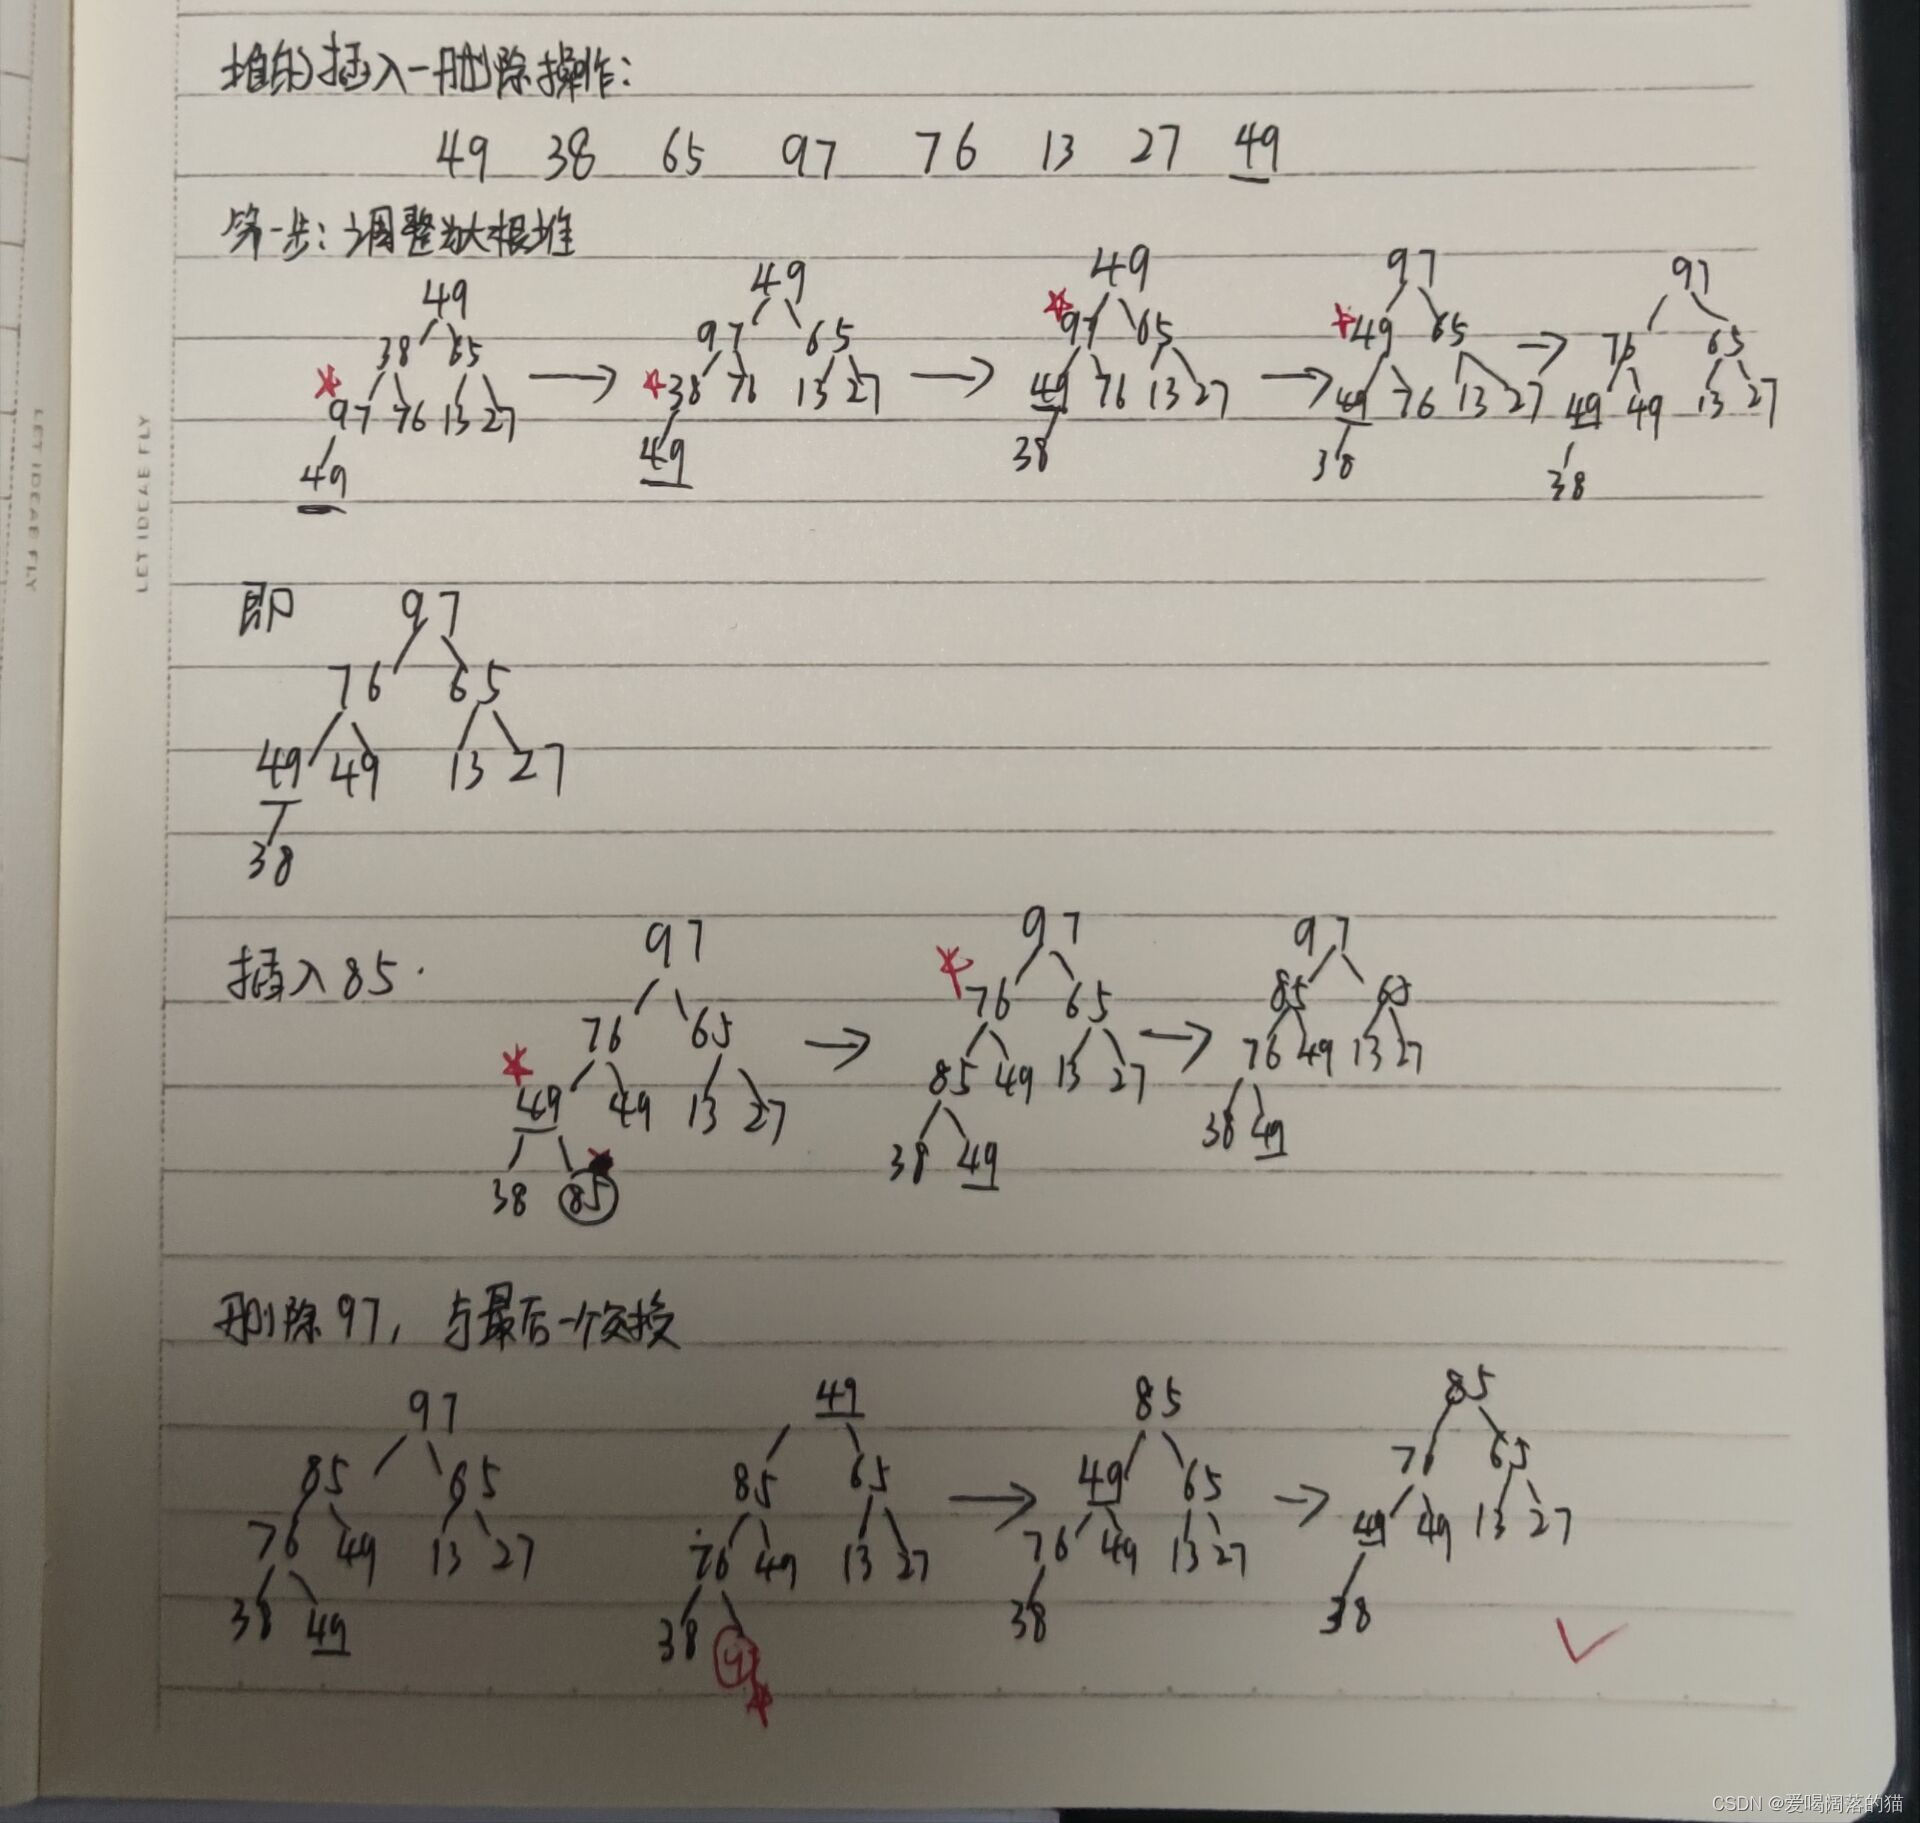 堆的插入-删除操作:
49 38 65 97 76 13 27 49
第一步: 调整为大根堆
49 49 49 97 97
38 65 97 65 97 65 49 65 76 65
97 76 13 27 38 76 13 27 49 76 13 27 49 76 13 27 49 49 13 27
49 49 38 38 38
即 97
76 65
49 49 13 27
38
插入85. 97 97 97
76 65 76 65 85 65
49 49 13 27 85 49 13 27 76 49 13 27
38 85 38 49 38 49
删除97, 与最后一个交换
97 49 85 85
85 65 85 65 49 65 76 65
76 49 13 27 76 49 13 27 76 49 13 27 49 49 13 27
38 49 38 97 38 38
LET IDEAE FLY
LET IDEAE FLY
CSDN @爱喝阔落的猫